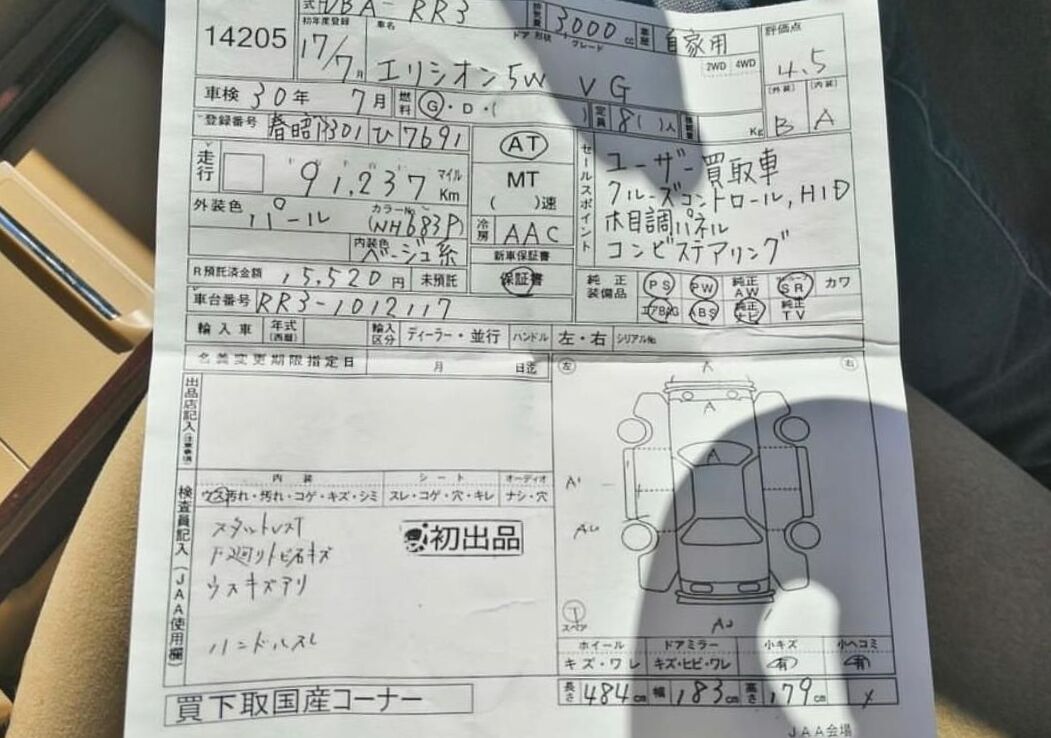 14205
式 DBA-RR3
排気量 3,000 cc
車歴 自家用
評価点 4.5
初年度登録 17/7月
車名 エリシオン5W
ドア 形状 グレード VG
2WD 4WD
(外装) B (内装) A
車検 30年 7月
燃料 G・D・( )
定員 8( )人
Kg
登録番号 301 ひ 7691
走行 91,237 マイル Km
AT
MT
( )速
セールスポイント
ユーザー買取車
クルーズコントロール,HID
木目調パネル
コンビステアリング
外装色 パール
カラーNo. (NH683P)
冷房 AAC
内装色 ベージュ系
新車保証書
R預託済金額 15,520円 未預託
保証書
純正装備品
PS PW 純正AW SR カワ
エアBAG ABS 純正ナビ 純正TV
車台番号 RR3-1012117
輸入車 年式(西暦) 輸入区分 ディーラー・並行 ハンドル 左・右 シリアル№
名義変更期限指定日 月 日迄
左 右
出品店記入(注意事項)
A
A
検査員記入(JAA使用欄)
内装 シート オーディオ
ウス汚れ・汚れ・コゲ・キズ・シミ スレ・コゲ・穴・キレ ナシ・穴
A1
初出品
下廻りトビ石キズ
ウスキズアリ
ハンドルスレ
T
スペア
ホイール ドアミラー 小キズ 小ヘコミ
キズ・ワレ キズ・ヒビ・ワレ 有 有
買下取国産コーナー
長さ 484cm 幅 183cm 高さ 179cm
JAA会場